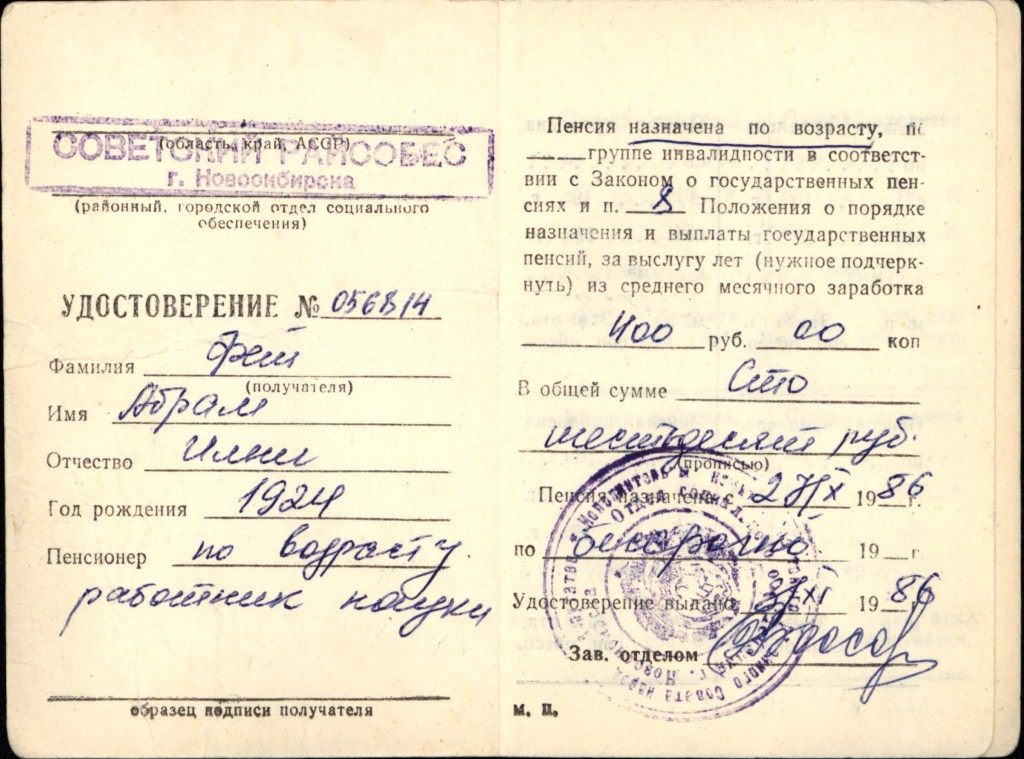 СОВЕТСКИЙ РАЙСОБЕС
(область, край, АССР)
г. Новосибирска
(районный, городской отдел социального
обеспечения)
УДОСТОВЕРЕНИЕ № 056814
Фамилия Фет
(получателя)
Имя Абрам
Отчество Илич
Год рождения 1924
Пенсионер по возрасту
работник науки
образец подписи получателя
Пенсия назначена по возрасту, по
группе инвалидности в соответст-
вии с Законом о государственных пен-
сиях и п. 8 Положения о порядке
назначения и выплаты государственных
пенсий, за выслугу лет (нужное подчерк-
нуть) из среднего месячного заработка
400 руб. 00 коп
В общей сумме Сто
шестьдесят руб.
(прописью)
Пенсия назначена с 1986 г.
по бессрочно 19 г.
Удостоверение выдано 1986
Зав. отделом
м. п.